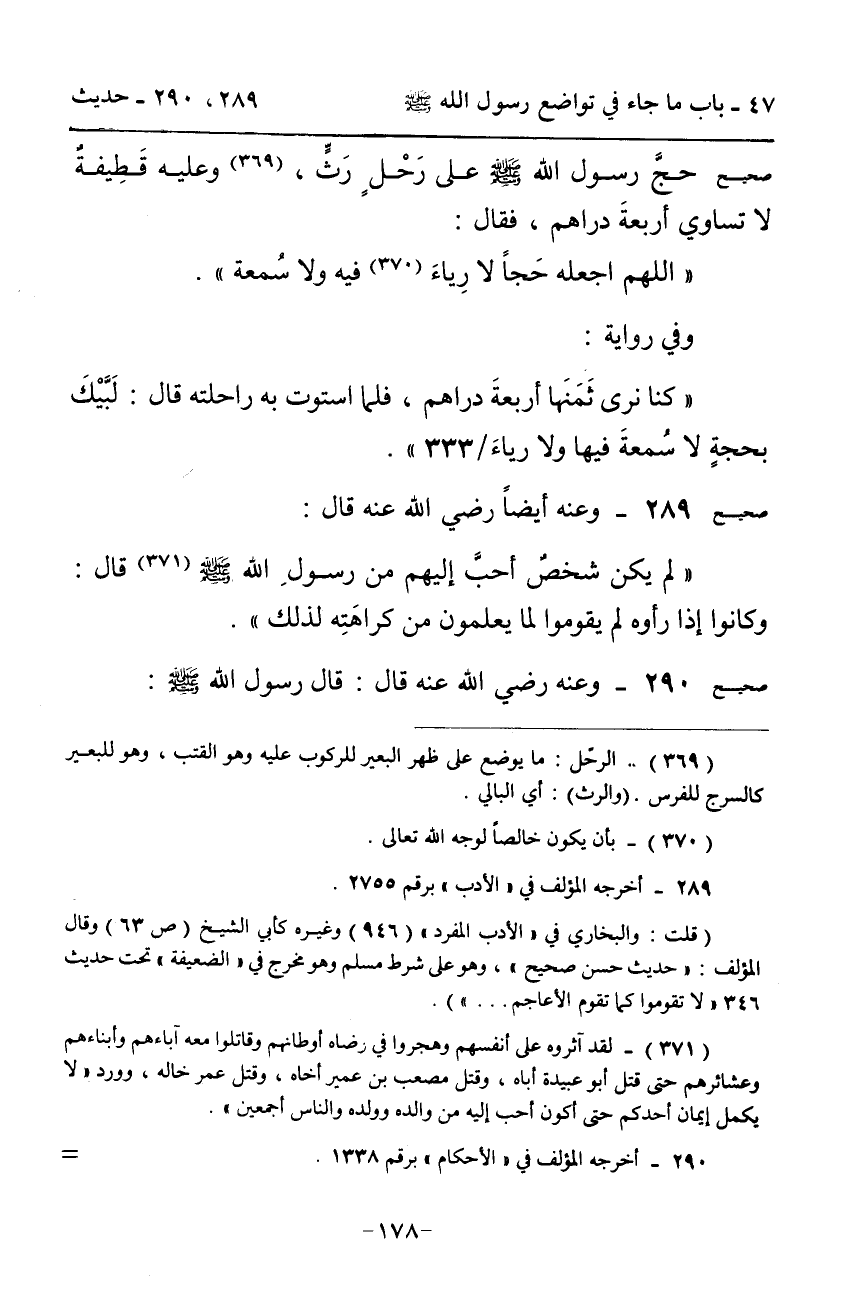 ٤٧ ـ باب ما جاء في تواضع رسول الله ﷺ ٢٨٩ ، ٢٩٠ ـ حديث
صحيح حجَّ رسول الله ﷺ على رَحْلٍ رَثٍّ ، (٣٦٩) وعليه قَطِيفةٌ
لا تساوي أربعةَ دراهم ، فقال :
« اللهم اجعله حَجاً لا رِياءَ (٣٧٠) فيه ولا سُمعة » .
وفي رواية :
« كنا نرى ثَمَنَها أربعةَ دراهم ، فلما استوت به راحلته قال : لَبَّيْكَ
بحجةٍ لا سُمعةَ فيها ولا رياءَ/٣٣٣ » .
صحيح ٢٨٩ ـ وعنه أيضاً رضي الله عنه قال :
« لم يكن شخصٌ أحبَّ إليهم من رسولِ الله ﷺ (٣٧١) قال :
وكانوا إذا رأوه لم يقوموا لما يعلمون من كراهَتِه لذلك » .
صحيح ٢٩٠ ـ وعنه رضي الله عنه قال : قال رسول الله ﷺ :
( ٣٦٩ ) .. الرحّل : ما يوضع على ظهر البعير للركوب عليه وهو القتب ، وهو للبعير
كالسرج للفرس . (والرث) : أي البالي .
( ٣٧٠ ) ـ بأن يكون خالصاً لوجه الله تعالى .
٢٨٩ ـ أخرجه المؤلف في « الأدب » برقم ٢٧٥٥ .
( قلت : والبخاري في « الأدب المفرد » ( ٩٤٦ ) وغيره كأبي الشيخ ( ص ٦٣ ) وقال
المؤلف : « حديث حسن صحيح » ، وهو على شرط مسلم وهو مخرج في « الضعيفة » تحت حديث
٣٤٦ « لا تقوموا كما تقوم الأعاجم . . . » ) .
( ٣٧١ ) ـ لقد آثروه على أنفسهم وهجروا في رضاه أوطانهم وقاتلوا معه آباءهم وأبناءهم
وعشائرهم حتى قتل أبو عبيدة أباه ، وقتل مصعب بن عمير أخاه ، وقتل عمر خاله ، وورد « لا
يكمل إيمان أحدكم حتى أكون أحب إليه من والده وولده والناس أجمعين » .
٢٩٠ ـ أخرجه المؤلف في « الأحكام » برقم ١٣٣٨ . =
-١٧٨-